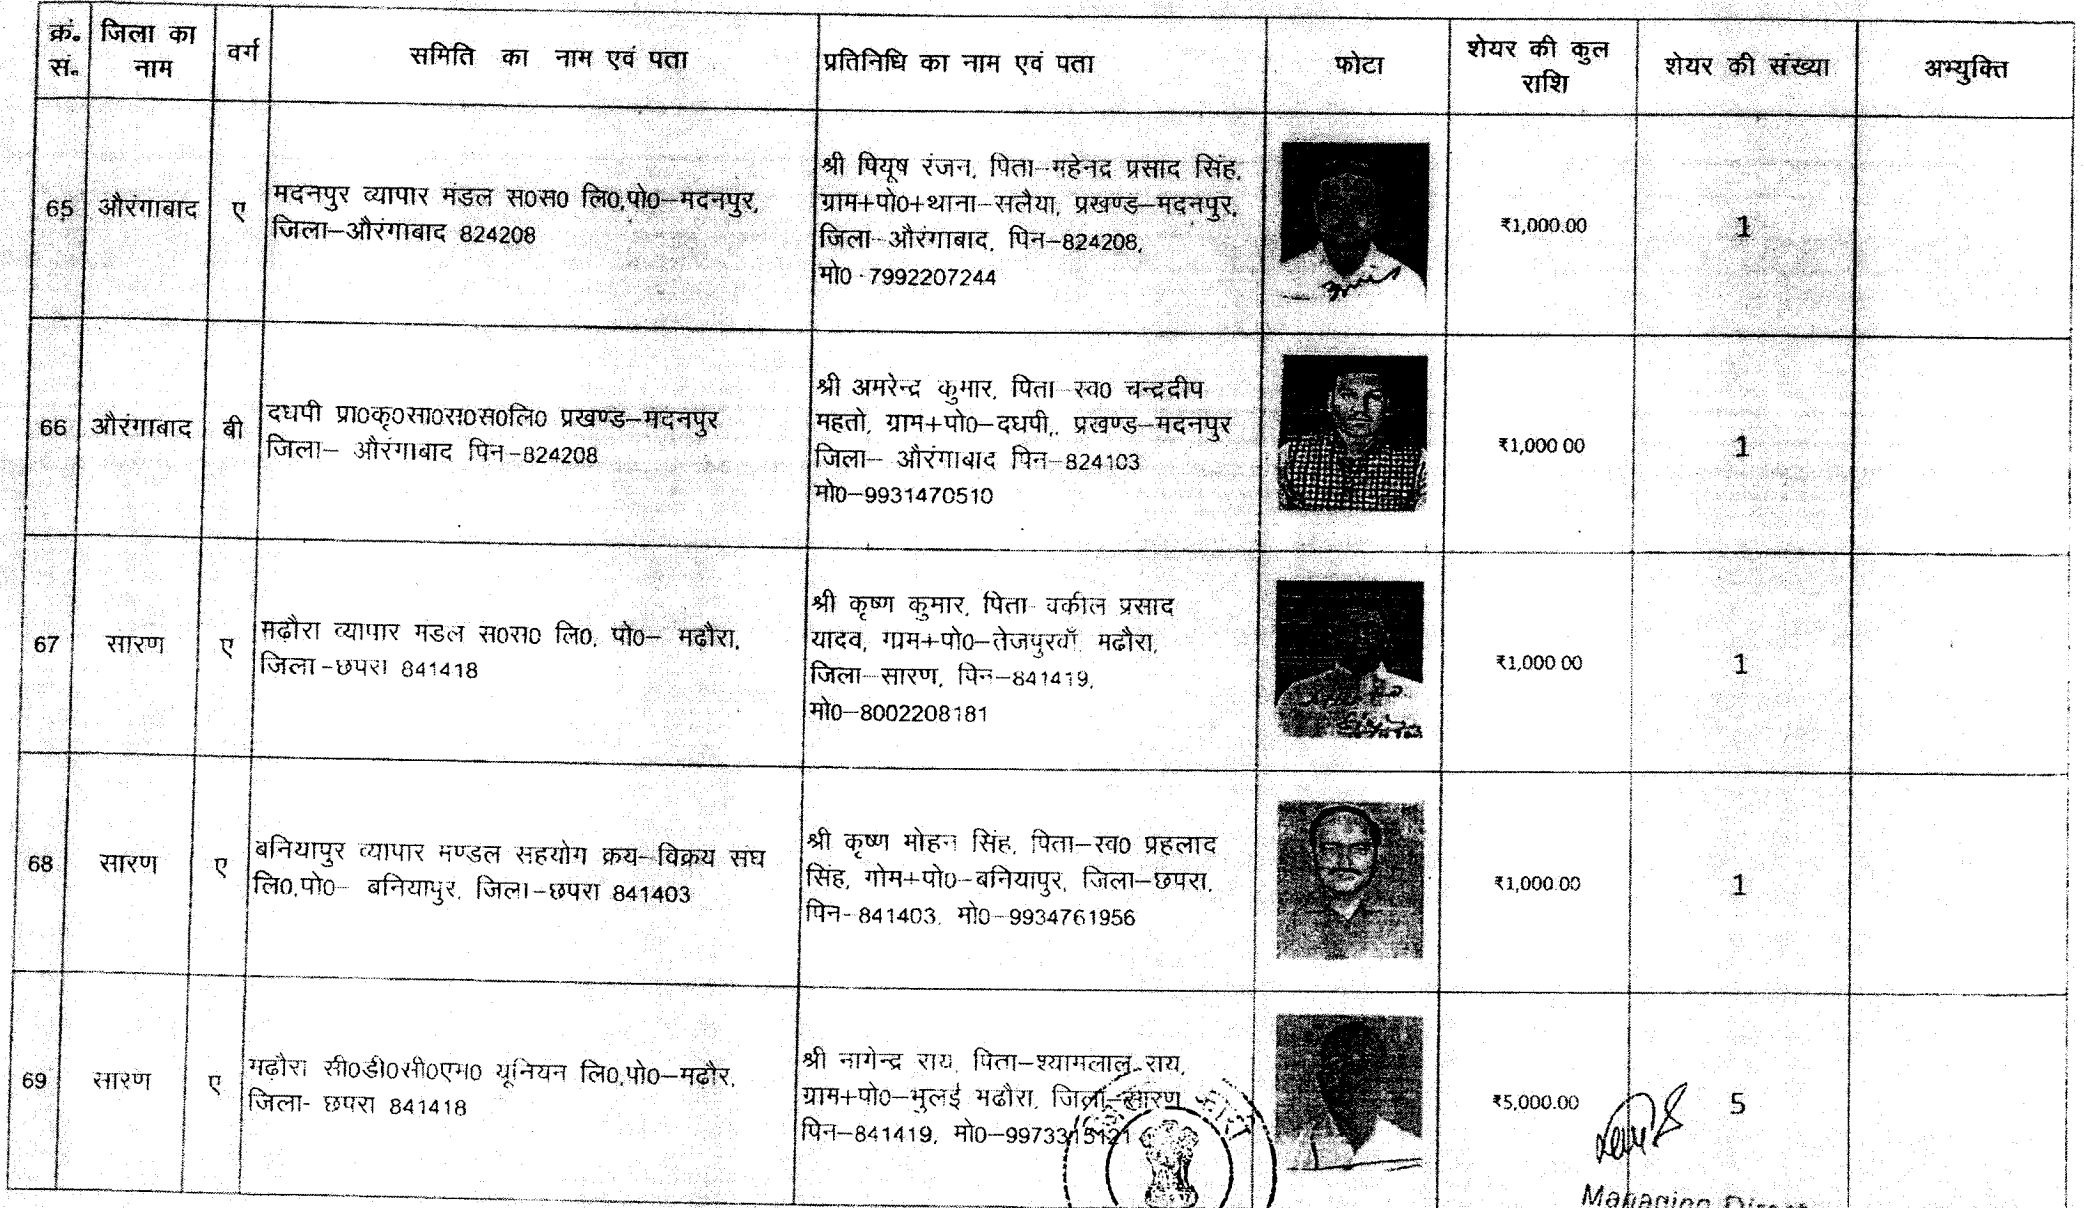 क्रं. सं.
जिला का नाम
वर्ग
समिति का नाम एवं पता
प्रतिनिधि का नाम एवं पता
फोटा
शेयर की कुल राशि
शेयर की संख्या
अभ्युक्ति
65
औरंगाबाद
ए
मदनपुर व्यापार मंडल स0स0 लि0,पो0–मदनपुर,
जिला–औरंगाबाद 824208
श्री पियूष रंजन, पिता–महेनद्र प्रसाद सिंह,
ग्राम+पो0+थाना–सलैया, प्रखण्ड–मदनपुर,
जिला–औरंगाबाद, पिन–824208,
मो0-7992207244
₹1,000.00
1
66
औरंगाबाद
बी
दधपी प्रा0कृ0सा0स0स0लि0 प्रखण्ड–मदनपुर
जिला– औरंगाबाद पिन–824208
श्री अमरेन्द्र कुमार, पिता–स्व0 चन्द्रदीप
महतो, ग्राम+पो0–दधपी,, प्रखण्ड–मदनपुर
जिला– औरंगाबाद पिन–824103
मो0–9931470510
₹1,000 00
1
67
सारण
ए
मढ़ौरा व्यापार मंडल स0स0 लि0, पो0– मढ़ौरा,
जिला-छपरा 841418
श्री कृष्ण कुमार, पिता- वकील प्रसाद
यादव, गाम+पो0–तेजपुरवाँ, मढौरा,
जिला–सारण, पिन–841419,
मो0–8002208181
₹1,000 00
1
68
सारण
ए
बनियापुर व्यापार मण्डल सहयोग क्रय–विक्रय संघ
लि0,पो0– बनियापुर, जिला–छपरा 841403
श्री कृष्ण मोहन सिंह, पिता–स्व0 प्रहलाद
सिंह, गोम+पो0–बनियापुर, जिला–छपरा,
पिन-841403, मो0–9934761956
₹1,000.00
1
69
सारण
ए
मढ़ौरा सी0डी0सी0एम0 यूनियन लि0,पो0–मढ़ौर,
जिला- छपरा 841418
श्री नागेन्द्र राय, पिता–श्यामलाल राय,
ग्राम+पो0–भुलई मढौरा, जिला–सारण
पिन–841419, मो0–9973315121
₹5,000.00
5
Managing